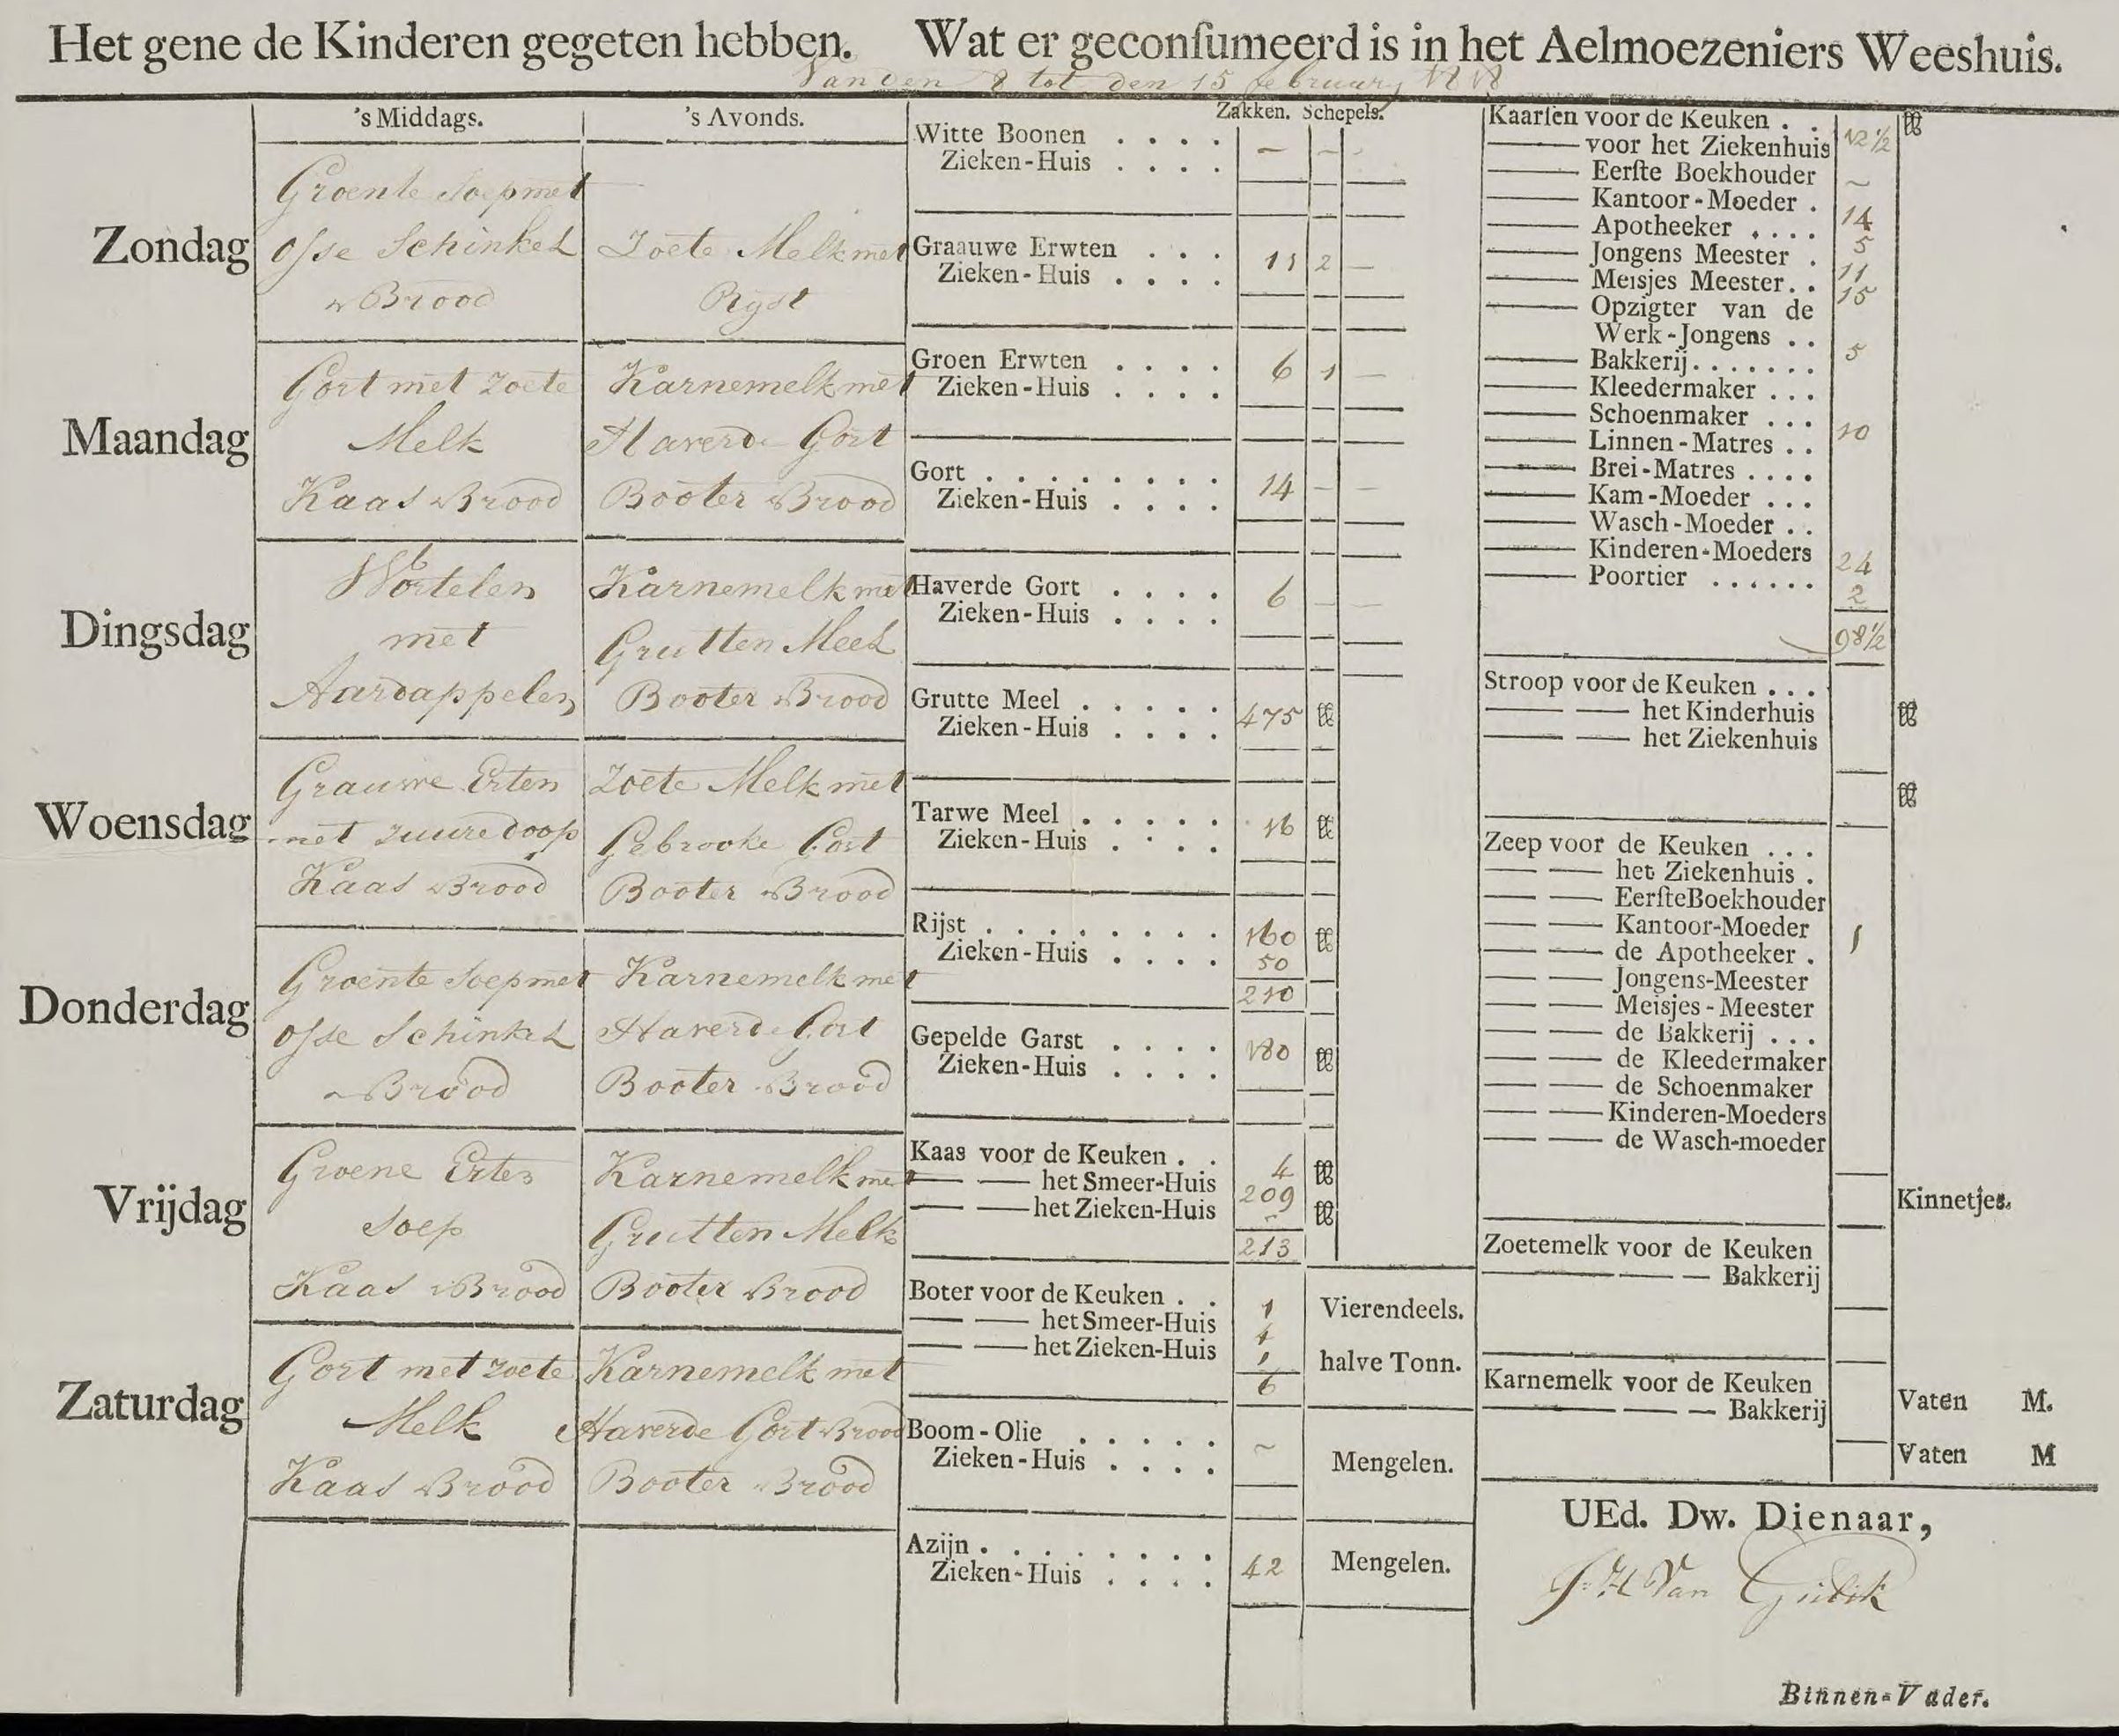 Het gene de Kinderen gegeten hebben. Wat er geconſumeerd is in het Aelmoezeniers Weeshuis.
Van den 8 tot den 15 february 1818
's Middags. 's Avonds.
Zondag
Groente Soep met
Osse Schinkel
Brood
Zoete Melk met
Ryst
Maandag
Gort met zoete
Melk
Kaas Brood
Karnemelk met
Haverde Gort
Booter Brood
Dingsdag
Wortelen
met
Aardappelen
Karnemelk met
Grutten Meel
Booter Brood
Woensdag
Grauwe Erten
met zuure doop
Kaas Brood
Zoete Melk met
Gebrooke Gort
Booter Brood
Donderdag
Groente Soep met
Osse Schinkel
Brood
Karnemelk met
Haverde Gort
Booter Brood
Vrijdag
Groene Erten
Soep
Kaas Brood
Karnemelk met
Grutten Melk
Booter Brood
Zaturdag
Gort met zoete
Melk
Kaas Brood
Karnemelk met
Haverde Gort Brood
Booter Brood
Zakken. Schepels.
Witte Boonen . . . . — —
Zieken-Huis . . . .
Graauwe Erwten . . . 11 2 —
Zieken-Huis . . . .
Groen Erwten . . . . 6 1 —
Zieken-Huis . . . .
Gort . . . . . . . . . 14 — —
Zieken-Huis . . . .
Haverde Gort . . . . 6 — —
Zieken-Huis . . . .
Grutte Meel . . . . . 475 ℔
Zieken-Huis . . . .
Tarwe Meel . . . . . 16 ℔
Zieken-Huis . . . .
Rijst . . . . . . . . . 160 ℔
Zieken-Huis . . . . 50
210
Gepelde Garst . . . . 180 ℔
Zieken-Huis . . . .
Kaas voor de Keuken . . 4 ℔
— — het Smeer-Huis 209
— — het Zieken-Huis — ℔
213
Boter voor de Keuken . . 1 Vierendeels.
— — het Smeer-Huis 4
— — het Zieken-Huis 1 halve Tonn.
6
Boom-Olie . . . . . ~
Zieken-Huis . . . . Mengelen.
Azijn . . . . . . . . .
Zieken-Huis . . . . 42 Mengelen.
Kaarſen voor de Keuken . . 12½ ℔
— voor het Ziekenhuis
— Eerſte Boekhouder ~
— Kantoor-Moeder . 14
— Apotheeker . . . . 5
— Jongens Meester . 11
— Meisjes Meester . . 15
— Opzigter van de
Werk-Jongens . .
— Bakkerij . . . . . . . 5
— Kleedermaker . . .
— Schoenmaker . . .
— Linnen-Matres . . 10
— Brei-Matres . . . .
— Kam-Moeder . . .
— Wasch-Moeder . .
— Kinderen-Moeders 24
— Poortier . . . . . . 2
98½
Stroop voor de Keuken . . .
— — het Kinderhuis ℔
— — het Ziekenhuis
℔
Zeep voor de Keuken . . .
— — het Ziekenhuis .
— — Eerſte Boekhouder
— — Kantoor-Moeder 1
— — de Apotheeker .
— — Jongens-Meester
— — Meisjes-Meester
— — de Bakkerij . . .
— — de Kleedermaker
— — de Schoenmaker
— — Kinderen-Moeders
— — de Wasch-moeder
Kinnetjes.
Zoetemelk voor de Keuken
— — — Bakkerij
Karnemelk voor de Keuken
Vaten M.
— — — Bakkerij
Vaten M
UEd. Dw. Dienaar,
Van
Binnen-Vader.